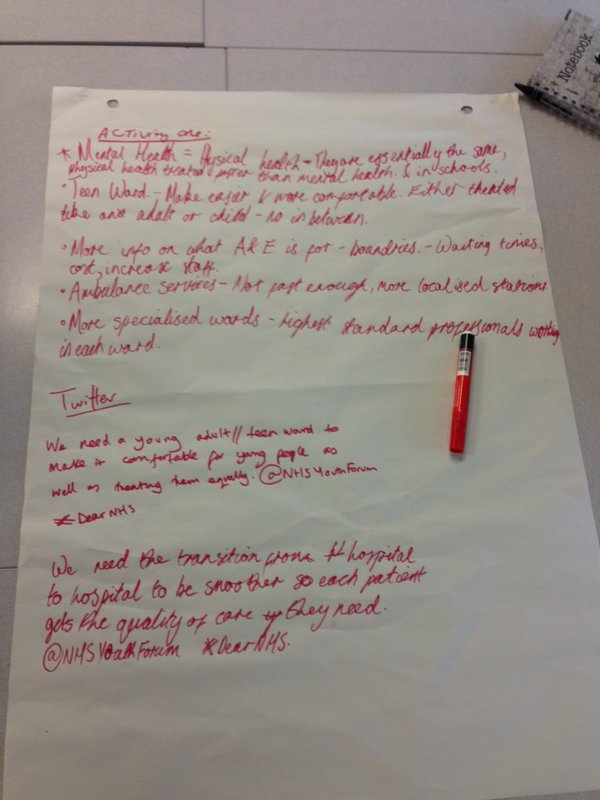 Notebook
Activity one:
* Mental Health = Physical health - They are essentially the same,
physical health treated faster than mental health. & in schools.
• Teen Ward. - Make easier & more comfortable. Either treated
like an adult or child - no in between.
• More info on what A&E is for - boundries. - Waiting times,
cost, increase staff.
• Ambulance services - Not fast enough, more localised stations
• More specialised words - Highest standard professionals working
in each ward.
Twitter
We need a young adult // teen ward to
make it comfortable for young people as
well as treating them equally. @NHSYouthForum
#DearNHS
We need the transition from hospital
to hospital to be smoother so each patient
gets the quality of care they need.
@NHSYouthForum #DearNHS.